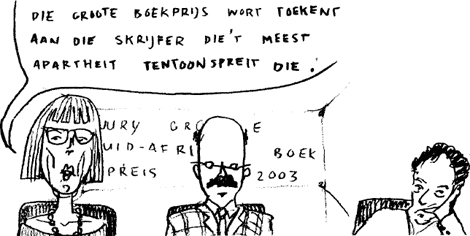 DIE GROOTE BOEKPRIJS WORT TOEKENT
AAN DIE SKRIJFER DIE'T MEEST
APARTHEIT TENTOONSPREIT DIE.
URY GRO E
UID-AFRI BOEK
PREIS 2003